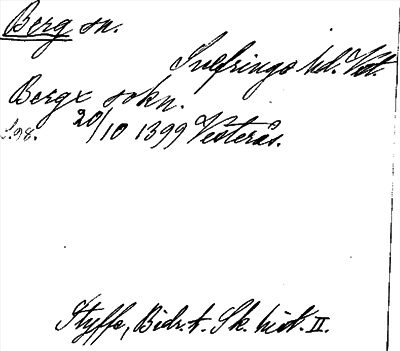 Berg sn.
Snefrings hd. Vst.
Bergx sokn.
S. 98. 20/10 1399 Vesterås.
Styffe, Bidr. t. Sk. hist. II.